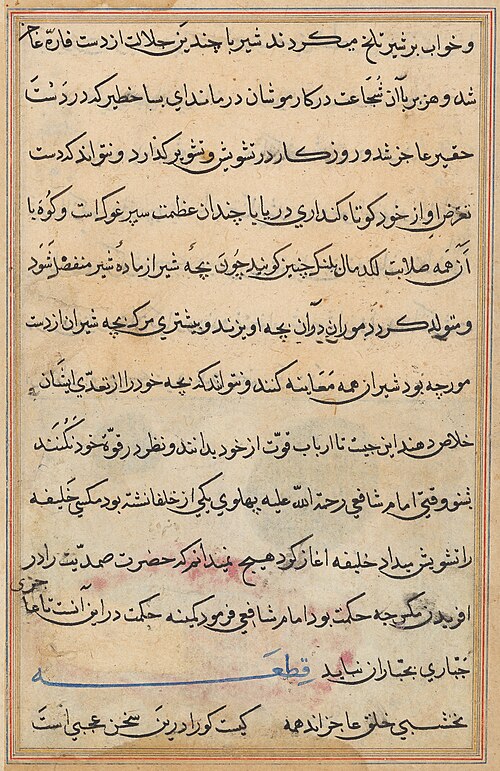 و خواب بر شیر تلخ میکردند شیر با چندین جلالت از دست فارهٔ عاجز
شد و هزبر با آن شجاعت در کار موشان درماند ای بسا خطیر که در دست
حقیر عاجز شد و روزکار در تشویش و تشویر کذارد و نتواند که دست
تعرض او از خود کوتاه کند اری دریا با چندان عظمت سپر غوک است و کوه با
آن همه صلابت لکدمال چنین کویند چون بچهٔ شیر از مادهٔ شیر منفصل شود
و متولد کردد موران در آن بچه اویزند و بیشتری مرک بچه شیران از دست
مورچه بود شیران همه معاینه کنند و نتوانند که بچه خود را از تعدّی ایشان
خلاص دهند این چیست تا ارباب قوّت از خود بدانند و نظر در قوّهٔ خود نکنند
شنو وقتی امام شافعی رحمة الله علیه پهلوی یکی از خلفا نشته بود مکسی خلیفه
را تشویش میداد خلیفه اغاز کرد هیچ میدانی که حضرت صمدیّت را در
اوریدن مکس چه حکمت بود امام شافعی فرمود کمینه حکمت در این آنست تا
جزی
جبّاری بجباران نماید قطعه
نخشبی خلق عاجزاند همه کیست کورا درین سخن عجبی است